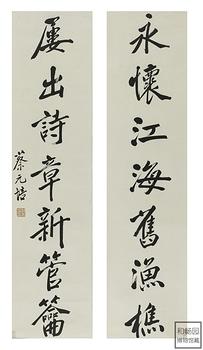 永懷江海舊漁樵
屢出詩章新管籥
蔡元培
和畅园
博物馆藏